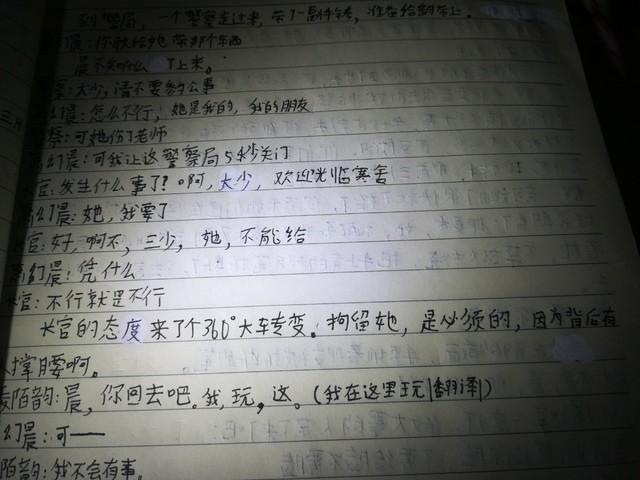 到警局，一个警察走过来，带了一副手铐，准备给韵带上。
晨：你敢给她带那个东西
晨不知什么 了上来。
察：大少，请不要妨公事
幻晨：怎么不行，她是我的，我的朋友
警察：可她伤了老师
幻晨：可我让这警察局5秒关门
官：发生什么事了？啊，大少，欢迎光临寒舍
幻晨：她，我要了
官：好，啊不，三少，她，不能给
幻晨：凭什么
长官：不行就是不行
长官的态度来了个360°大车专变。拘留她，是必须的，因为背后有
撑腰啊。
陌韵：晨，你回去吧。我，玩，这。（我在这里玩|翻译|）
幻晨：可——
陌韵：我不会有事。